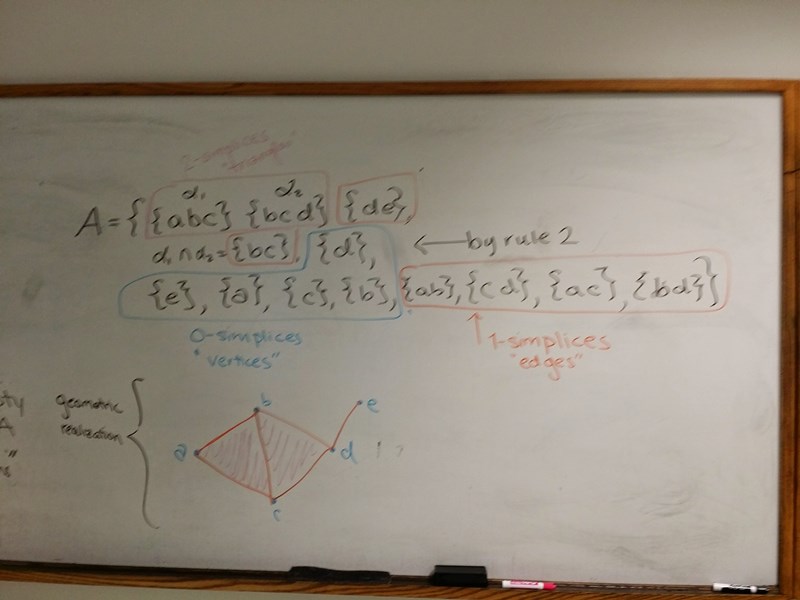 2-simplices
"triangles"
α₁ α₂
A = { {abc} {bcd} {de},
α₁ ∩ α₂ = {bc}, {d}, ← by rule 2
{e}, {a}, {c}, {b}, {ab}, {cd}, {ac}, {bd} }
0-simplices
"vertices"
1-simplices
"edges"
geometric
realization
A
a b c d e